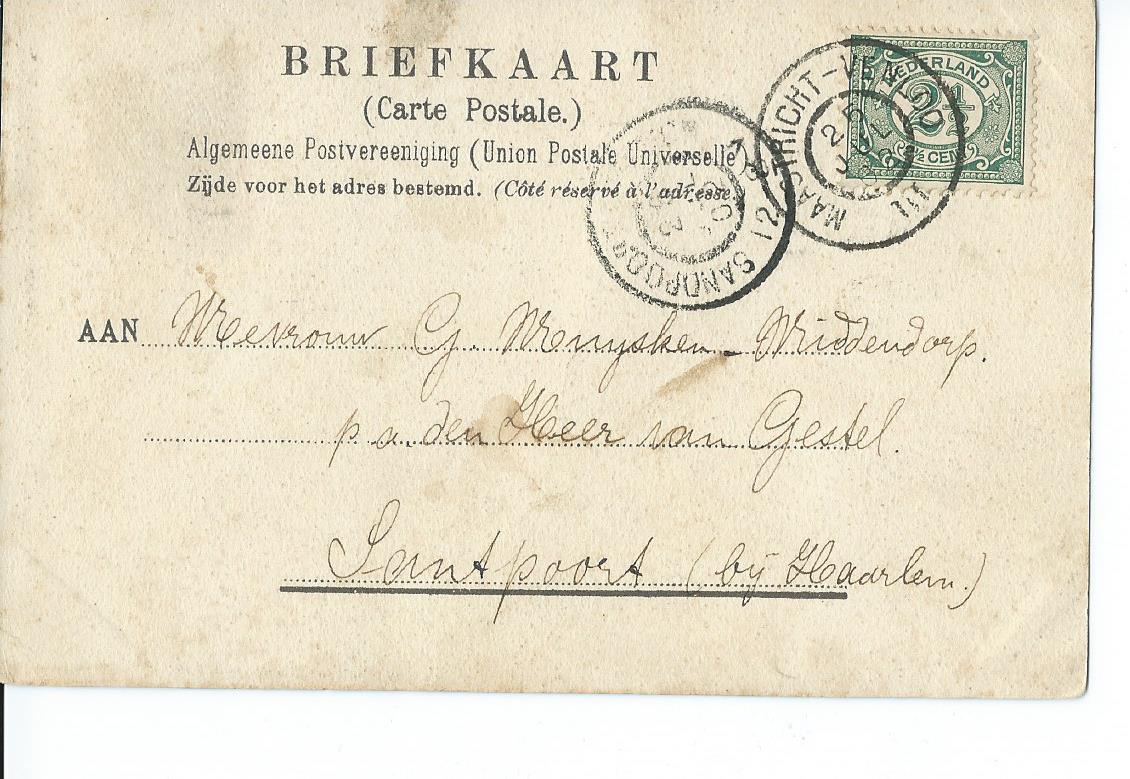 BRIEFKAART
(Carte Postale.)
Algemeene Postvereeniging (Union Postale Universelle)
Zijde voor het adres bestemd. (Côté réservé à l'adresse
NEDERLAND
2½
2½ CENT
MAASTRICHT-VENLO
SANDPOORT
AAN Mevrouw G. Menysken-Middendorp.
p a. den Heer van Gestel.
Santpoort (bij Haarlem.)